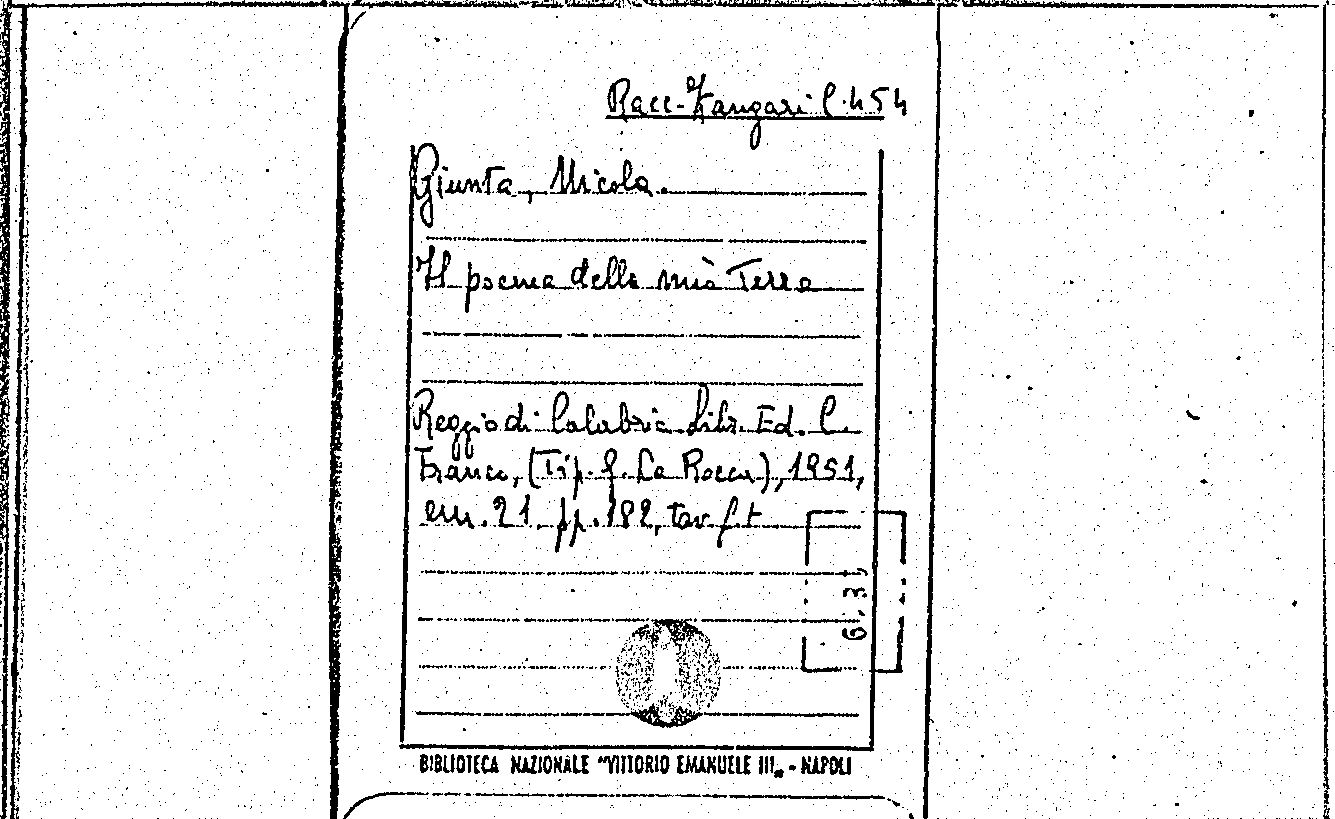 Racc. Zangari C. 454
Giunta, Nicola.
Il poema della mia Terra
Reggio di Calabria. Libr. Ed. C.
Franco, (Tip. G. La Rocca), 1951,
cm. 21 pp. 182, tav. f. t
BIBLIOTECA NAZIONALE "VITTORIO EMANUELE III„ - NAPOLI